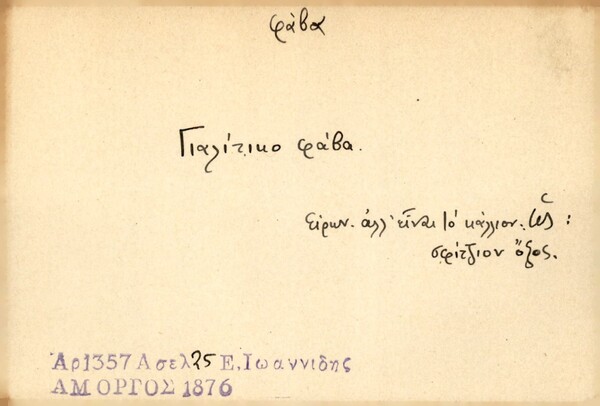 φάβα
Γιαλίτικο φάβα.
εἰρων. ἀλλ' εἶναι κάλλιον. ὡς :
σφίτζιον ὄξος.
Αρ1357 Ασελ25 Ε. Ιωαννιδης
ΑΜΟΡΓΟΣ 1876